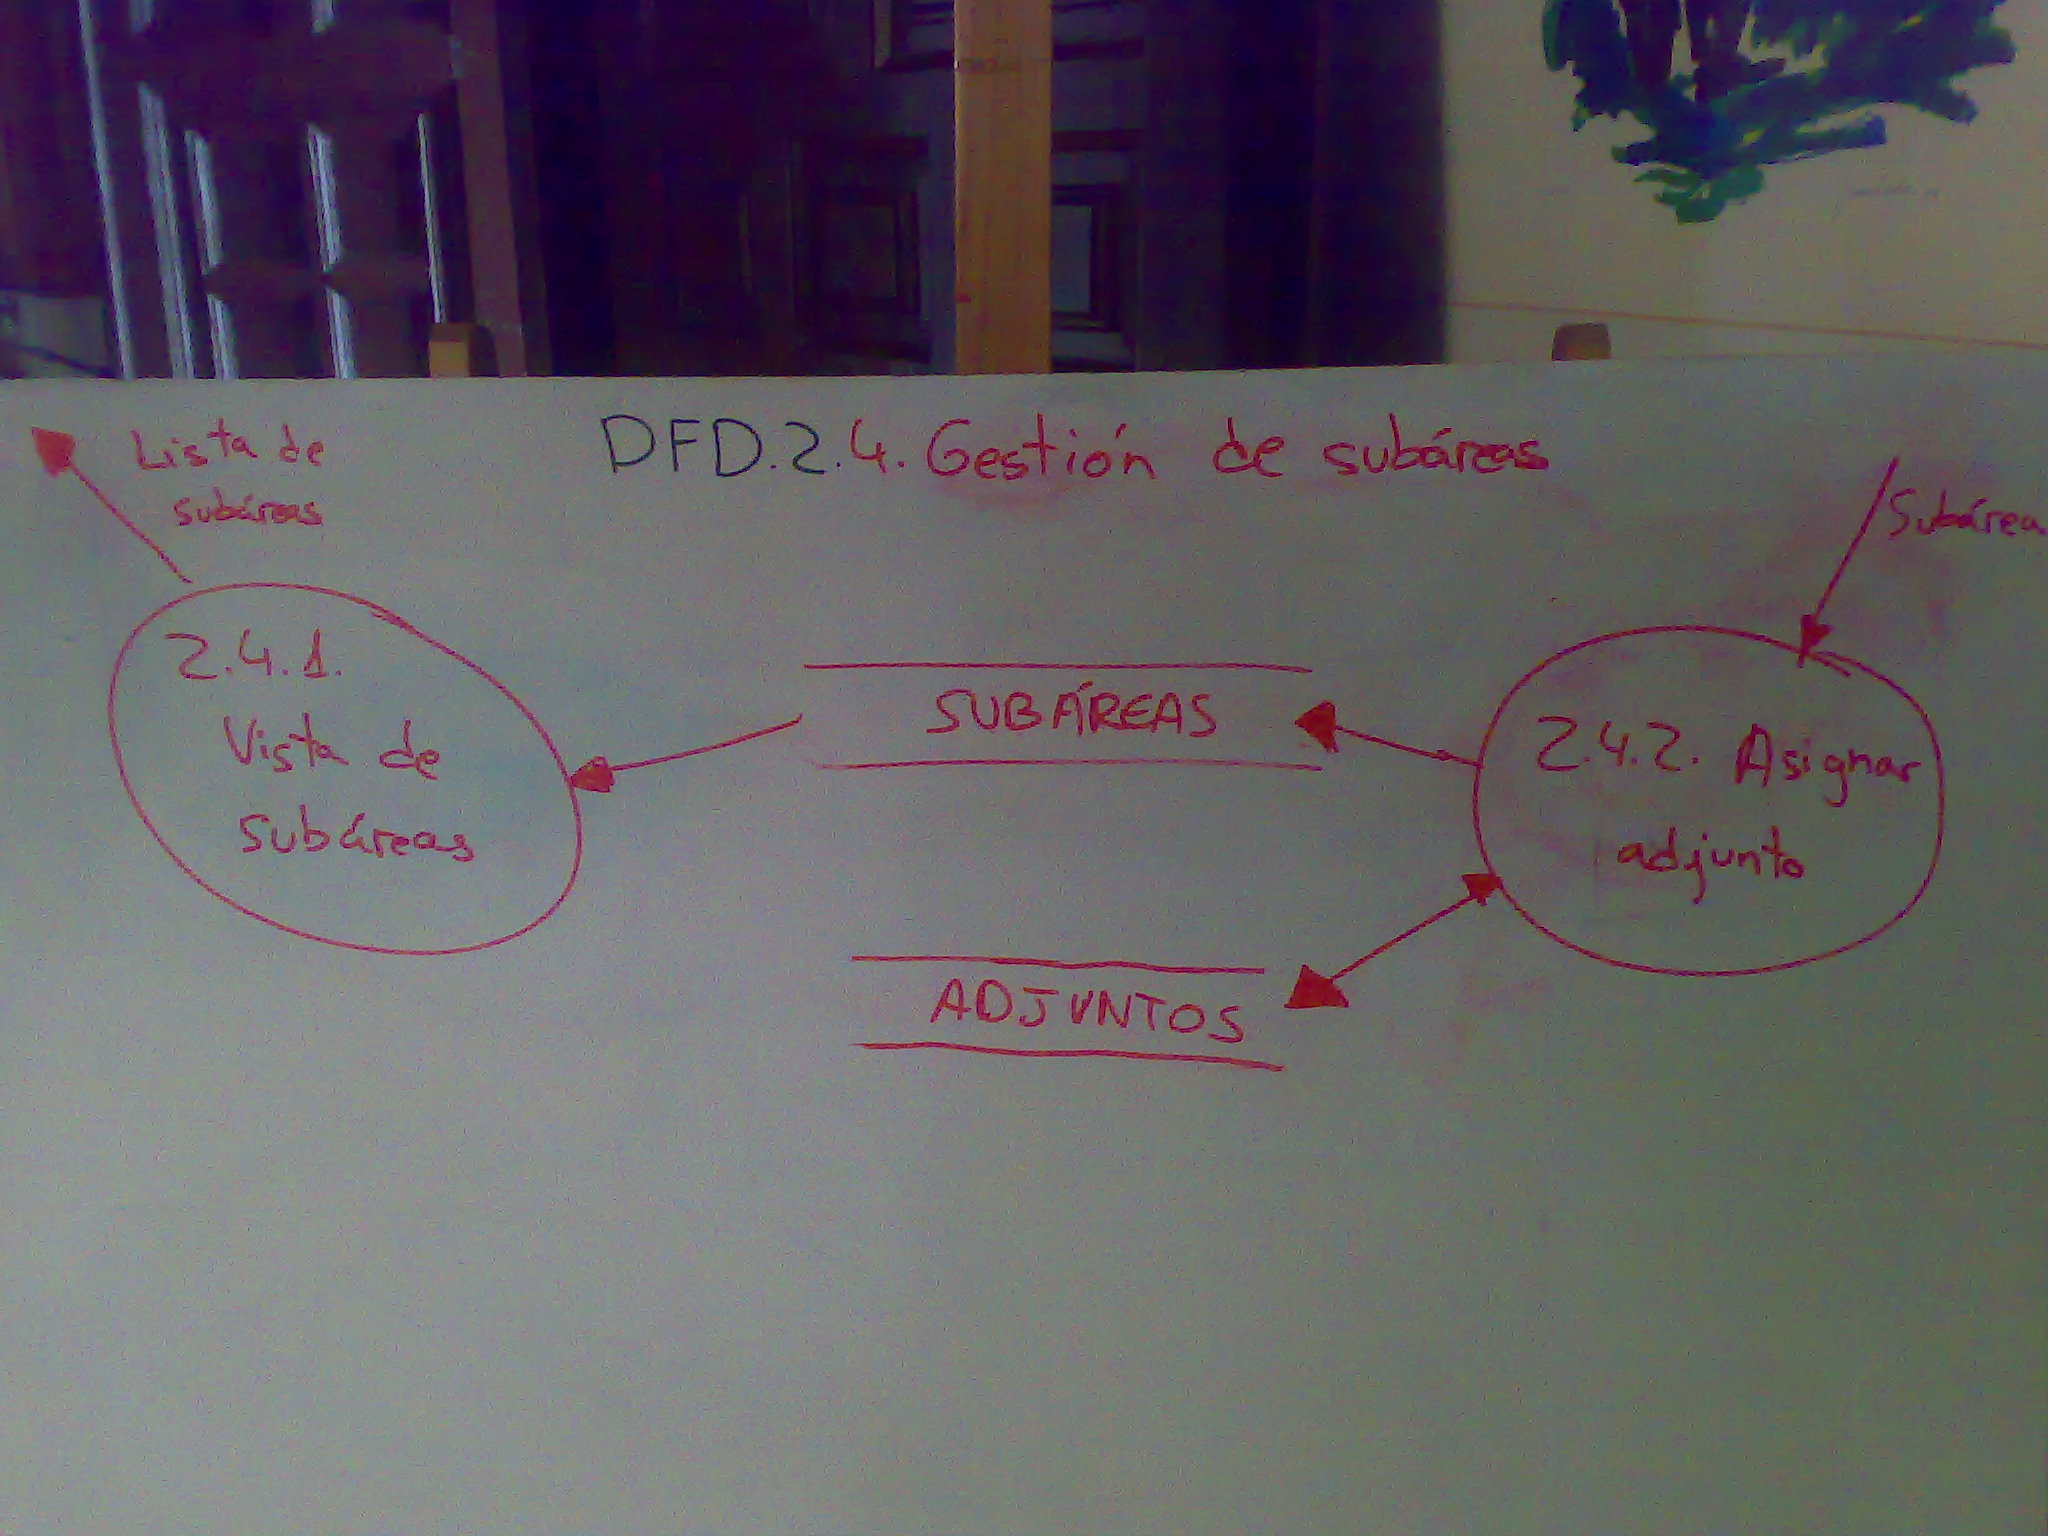 DFD.2.4. Gestión de subáreas
Lista de
subáreas
Subárea
2.4.1.
Vista de
subáreas
SUBÁREAS
2.4.2. Asignar
adjunto
ADJUNTOS